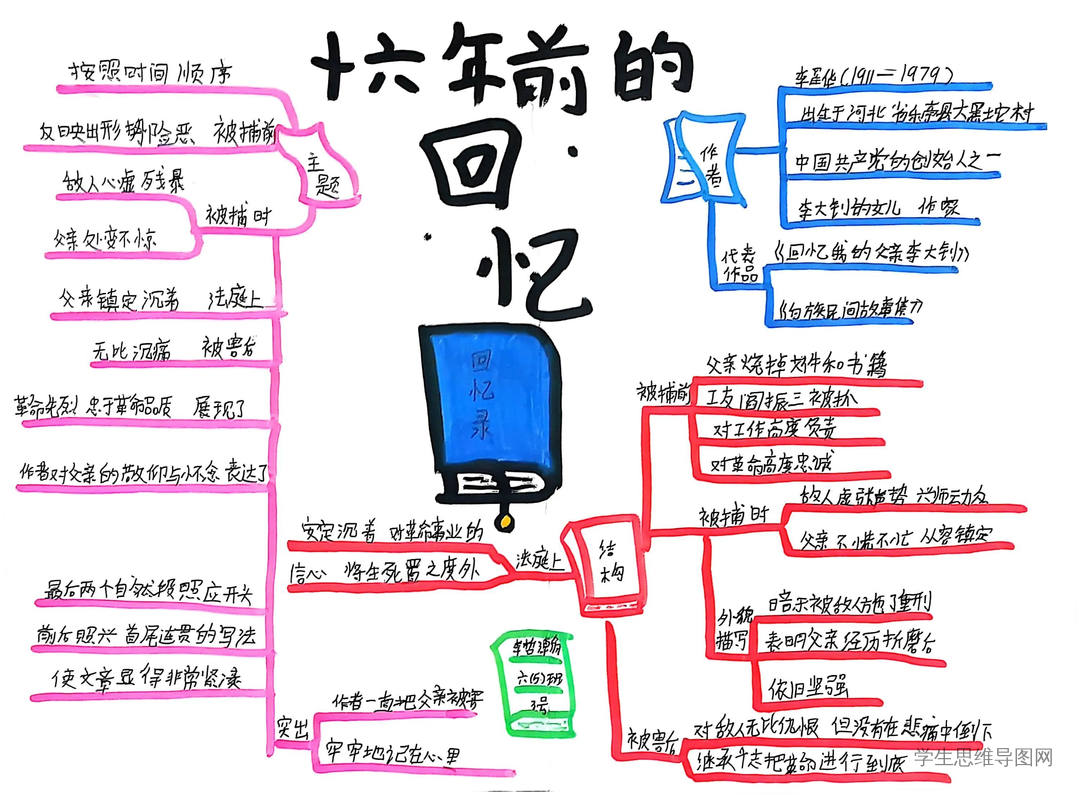 十六年前的
回
忆
回
忆
录
主
题
按照时间顺序
反映出形势险恶 被捕前
敌人心虚残暴
被捕时
父亲处变不惊
父亲镇定沉着 法庭上
无比沉痛 被害后
革命先烈 忠于革命品质 展现了
作者对父亲的敬仰与怀念 表达了
最后两个自然段照应开头
前后照应 首尾连贯的写法
使文章显得非常紧凑
突出
作者一直把父亲被害
牢牢地记在心里
作
者
李星华(1911—1979)
出生于河北省乐亭县大黑坨村
中国共产党的创始人之一
李大钊的女儿 作家
代表
作品
《回忆我的父亲李大钊》
《白族民间故事集》
结
构
被捕前
父亲烧掉文件和书籍
工友阎振三被抓
对工作高度负责
对革命高度忠诚
被捕时
敌人虚张声势 兴师动众
父亲不慌不忙 从容镇定
外貌
描写
暗示被敌人施了重刑
表明父亲经历折磨后
依旧坚强
法庭上
安定沉着 对革命事业的
信心 将生死置之度外
被害后
对敌人无比仇恨 但没有在悲痛中倒下
六(5)班
3号
学生思维导图网